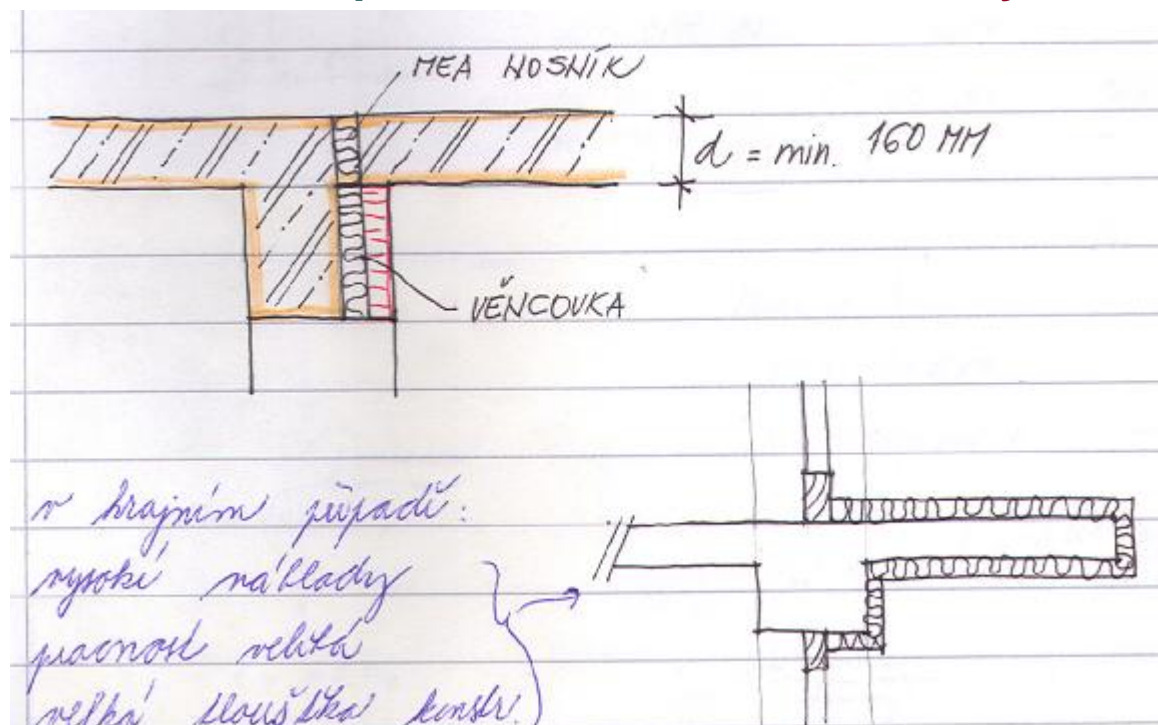 MEA NOSNÍK
d = min. 160 MM
VĚNCOVKA
v krajním případě:
vysoké náklady
pracnost veliká
velká tloušťka konstr.